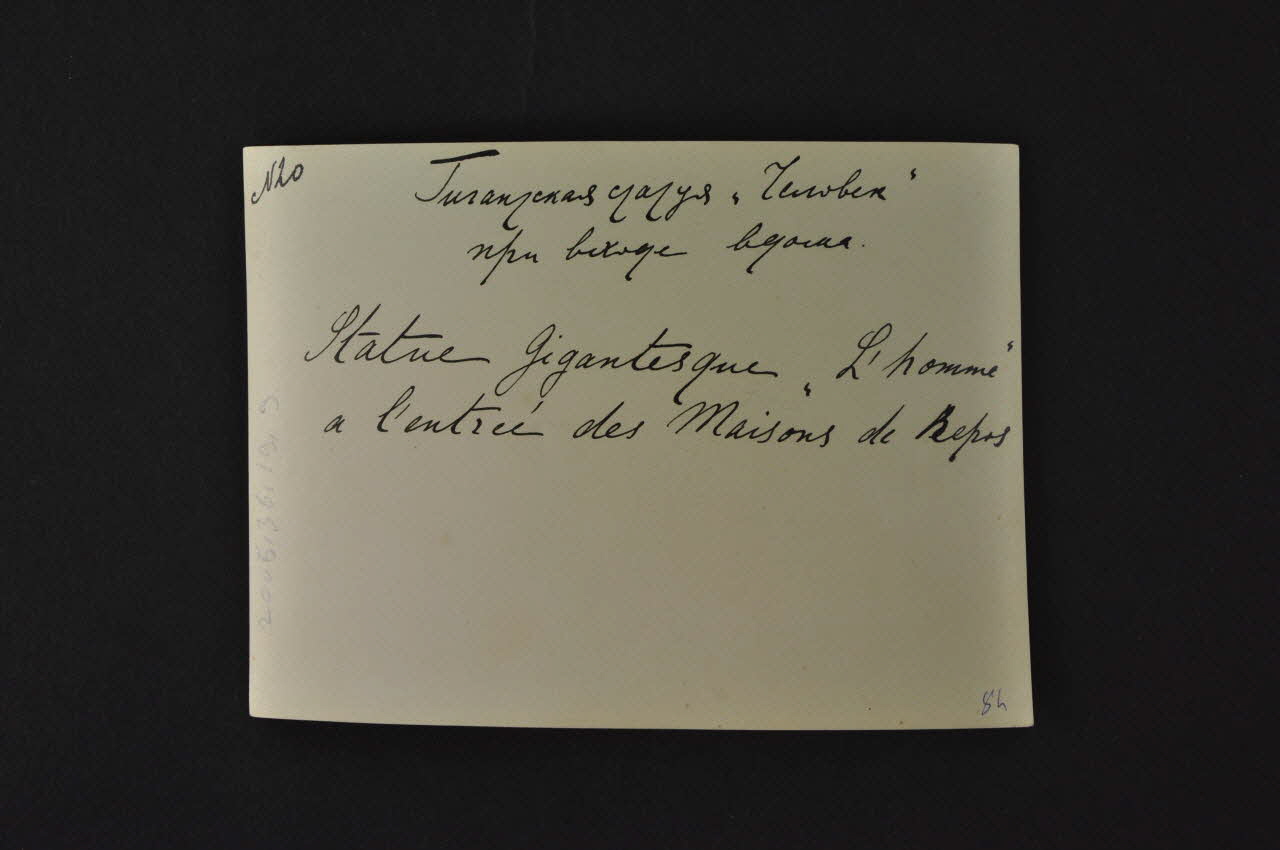 N20
Гигантская статуя „Человек“
при входе в дома.
Statue Gigantesque „L'homme“
a l'entrée des Maisons de Repos
84